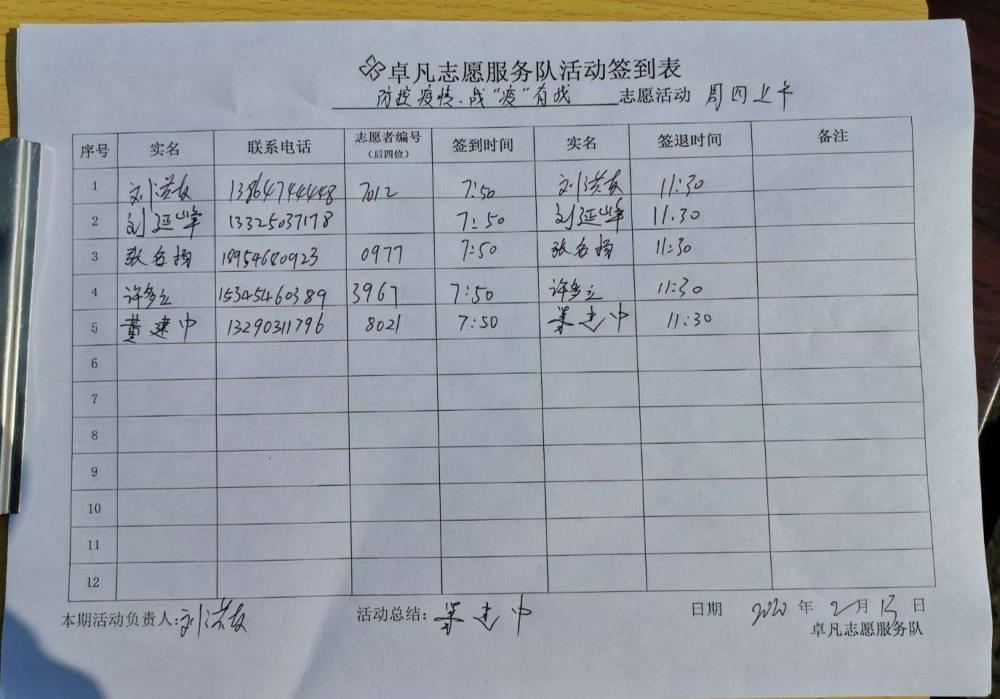 卓凡志愿服务队活动签到表
防控疫情、战“疫”有我 志愿活动 周四上午
序号 实名 联系电话 志愿者编号（后四位） 签到时间 实名 签退时间 备注
1 刘洪友 13864744448 7012 7:50 刘洪友 11:30
2 刘延峰 13325037178 7:50 刘延峰 11.30
3 张名扬 18954680923 0977 7:50 张名扬 11:30
4 许多立 15345460389 3967 7:50 许多立 11:30
5 黄建中 13290311796 8021 7:50 建中 11:30
6
7
8
9
10
11
12
本期活动负责人:刘洪友 活动总结: 建中 日期 2020 年 2 月 13 日
卓凡志愿服务队